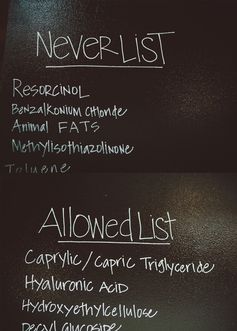 NEVER LIST
RESORCINOL
BENZALKONIUM CHLORIDE
Animal FATS
Methylisothiazolinone
Toluene
Allowed List
CAPRYLIC / CAPRIC TRIGLYCERIDE
HYALURONIC ACID
HYDROXYETHYLCELLULOSE
DECYL GLUCOSIDE